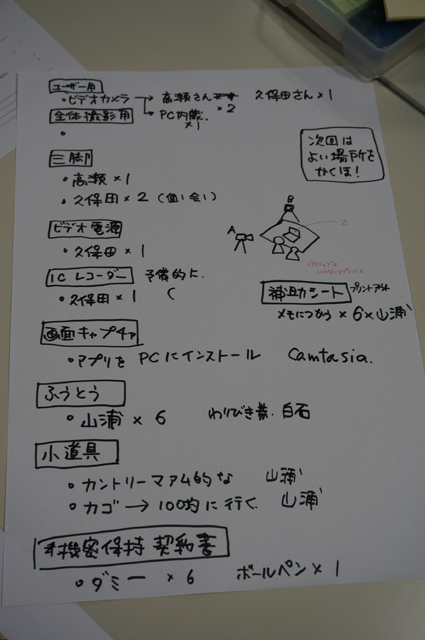 ユーザー用
・ビデオカメラ → 高瀬さん ×2 久保田さん×1
→ PC内蔵 ×1
全体撮影用
・
次回は
よい場所を
かくほ!
三脚
・高瀬×1
・久保田×2
ビデオ電源
・久保田×1
A
B
Z
ICレコーダー 予備的に
・久保田×1
補助シート プリントアウト
メモにつかう ×6×山浦
画面キャプチャ
・アプリをPCにインストール Camtasia.
ふうとう
・山浦×6 わりびき券. 白石
小道具
・カントリーマアム的な 山浦
・カゴ → 100均に行く. 山浦
機密保持契約書
・ダミー ×6 ボールペン×1